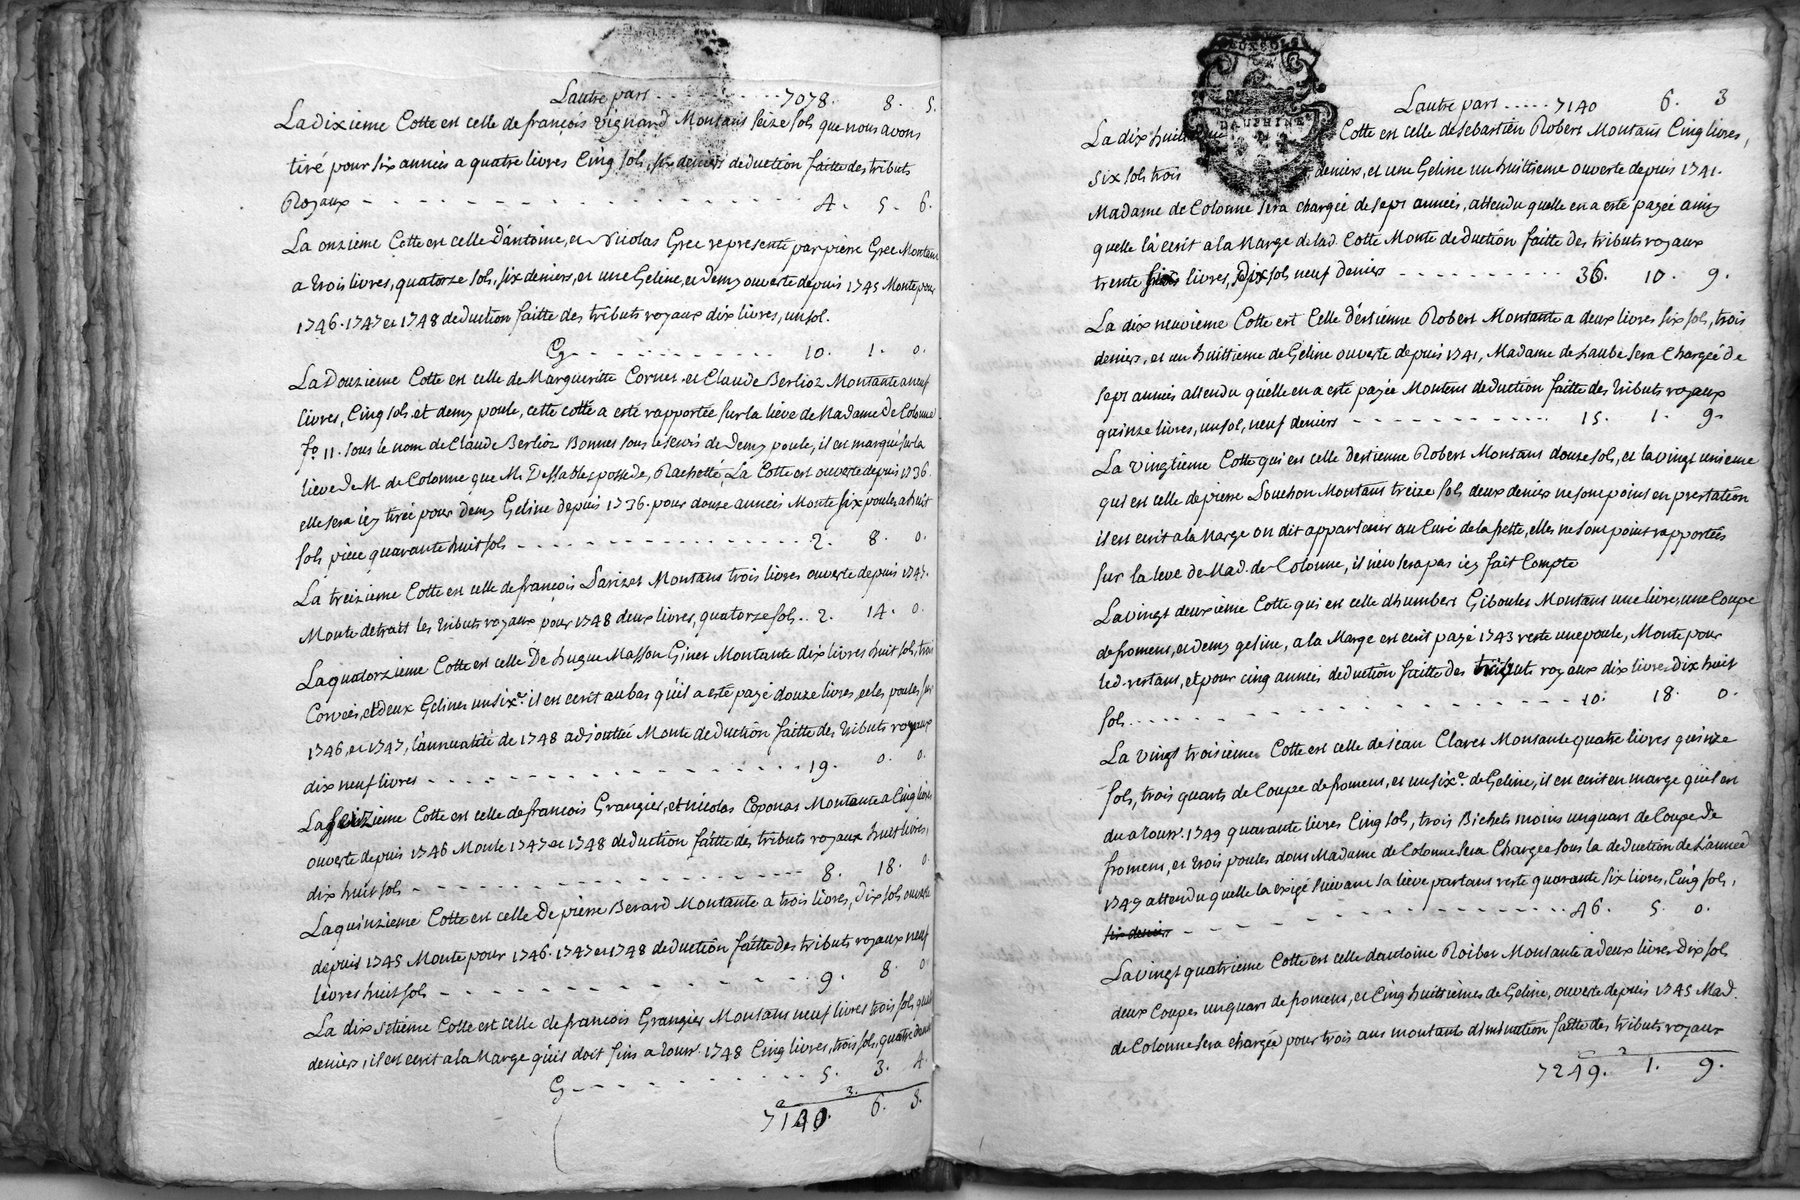 Lautre part . . . . . . . . . . 7078. 8. 5.
La dixieme Cotte est celle de francois vignard Montant seize sols que nous avons
tiré pour six années a quatre livres Cinq sols, six deniers deduction faitte des tributs
Royaux - - - - - - - - - - 4. 5. 6.
La onzieme Cotte est celle d'antoine, et Nicolas Gree representé par pierre Gree Montant
a trois livres, quatorze sols, six deniers, et une Geline, et demy ouverte depuis 1745 Monte pour
1746. 1747 et 1748 deduction faitte des tributs royaux dix livres, un sol.
Cy - - - - - - - - - - 10. 1. 0.
La Douzieme Cotte est celle de Margueritte Cornet et Claude Berlioz Montante a neuf
livres, Cinq sols et demy poule, cette cotte a esté rapportée sur la liéve de Madame de Colonne
fo. 11. sous le nom de Claude Berlioz Bonnet sous le servis de Demy poule, il est marqué sur la
lieve de M. de Colonne que Mr. Dessables possede, Rachetté, La Cotte est ouverte depuis 1736.
elle sera icy tirée pour demy Geline depuis 1736. pour douze années Monte six poules a huit
sols piece quarante huit sols - - - - - - - - - - 2. 8. 0.
La treizieme Cotte est celle de francois Darizet Montant trois livres ouverte depuis 1747.
Monte detrait les tributs royaux pour 1748 deux livres, quatorze sols . . 2. 14. 0.
La quatorzieme Cotte est celle De hugue Masson Ginet Montante dix livres huit sols, trois
Corvées, et deux Gelines un sixe. il est ecrit au bas qu'il a esté payé douze livres, et les poules sur
1746, et 1747, l'annualité de 1748 adjouttée Monte deduction faitte des tributs royaux
dix neuf livres - - - - - - - - - - 19. 0. 0.
La seizieme Cotte est celle de francois Grangier, et nicolas Coponat Montante a Cinq livres
ouverte depuis 1746 Monte 1747 et 1748 deduction faitte des tributs royaux huit livres,
dix huit sols - - - - - - - - - - 8. 18. 0.
La quinzieme Cotte est celle De pierre Berard Montante a trois livres, dix sols ouverte
depuis 1745 Monte pour 1746. 1747 et 1748 deduction faitte des tributs royaux neuf
livres huit sols - - - - - - - - - - 9. 8. 0.
La dix setieme Cotte est celle de francois Grangier Montant neuf livres trois sols, quatre
deniers, il est ecrit a la Marge qu'il doit fins a toutt. 1748 Cinq livres, trois sols, quatre deniers
Cy - - - - - - - - - - 5. 3. 4.
7140. 6. 3.
Lautre part . . . . . 7140 6. 3
DAUPHINE
La dix huitieme Cotte est celle de Sebastien Robert Montant Cinq livres,
six sols trois deniers, et une Geline un huittieme ouverte depuis 1741.
Madame de Colonne sera chargée de sept années, attendu quelle en a esté payée ainsy
quelle l'a ecrit a la Marge de lad. Cotte Monte deduction faitte des tributs royaux
trente six livres, dix sols neuf deniers - - - - - - - - - - 36. 10. 9.
La dix neuvieme Cotte est Celle d'estienne Robert Montante a deux livres six sols, trois
deniers, et un huittieme de Geline ouverte depuis 1741, Madame de Laube sera Chargée de
sept années attendu qu'elle en a esté payée Montent deduction faitte des tributs royaux
quinze livres, un sol, neuf deniers - - - - - - - - - - 15. 1. 9.
La vingtieme Cotte qui est celle d'estienne Robert Montant douze sols, et la vingt unieme
qui est celle de pierre Souchon Montant treize sols deux deniers ne sont point en prestation
il est ecrit a la Marge on dit appartenir au Curé de la frette, elles ne sont point rapportées
sur la leve de Mad. de Colonne, il n'en sera pas icy fait Compte
La vingt deuxieme Cotte qui est celle d'humbert Giboulet Montant une livre, une Coupe
de froment, et demy geline, a la Marge est ecrit payé 1743 reste une poule, Monte pour
led. restant, et pour cinq années deduction faitte des tributs royaux dix livres dix huit
sols . . . . . . . . . . 10. 18. 0.
La vingt troisieme Cotte est celle de jean Claret Montante quatre livres quinze
sols, trois quarts de Coupe de froment, et un sixe. de Geline, il est ecrit en marge qu'il en
du a toutt. 1749 quarante livres Cinq sols, trois Bichets moins un quart de Coupe de
froment, et trois poules dont Madame de Colonne sera Chargée sous la deduction de L'année
1749 attendu quelle la exigé suivant sa lieve partant reste quarante six livres, Cinq sols,
six deniers - - - - - - - - - - 46. 5. 0.
La vingt quatrieme Cotte est celle d'antoine Roibet Montante a deux livres dix sols
deux Coupes un quart de froment, et Cinq huittiémes de Geline, ouverte depuis 1745 Mad.
de Colonne sera chargée pour trois ans montants diminution faitte des tributs royaux
7249. 1. 9.